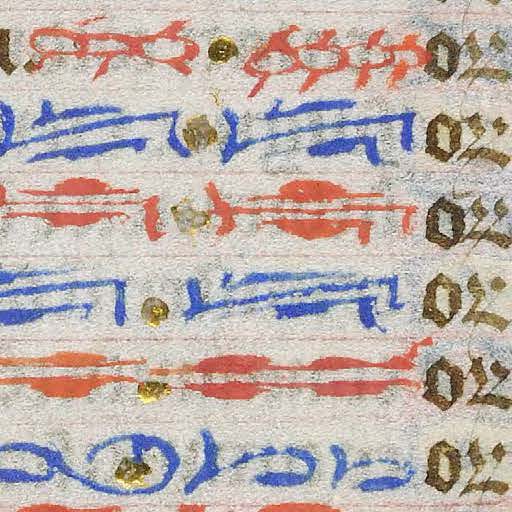 or
or
or
or
or
or